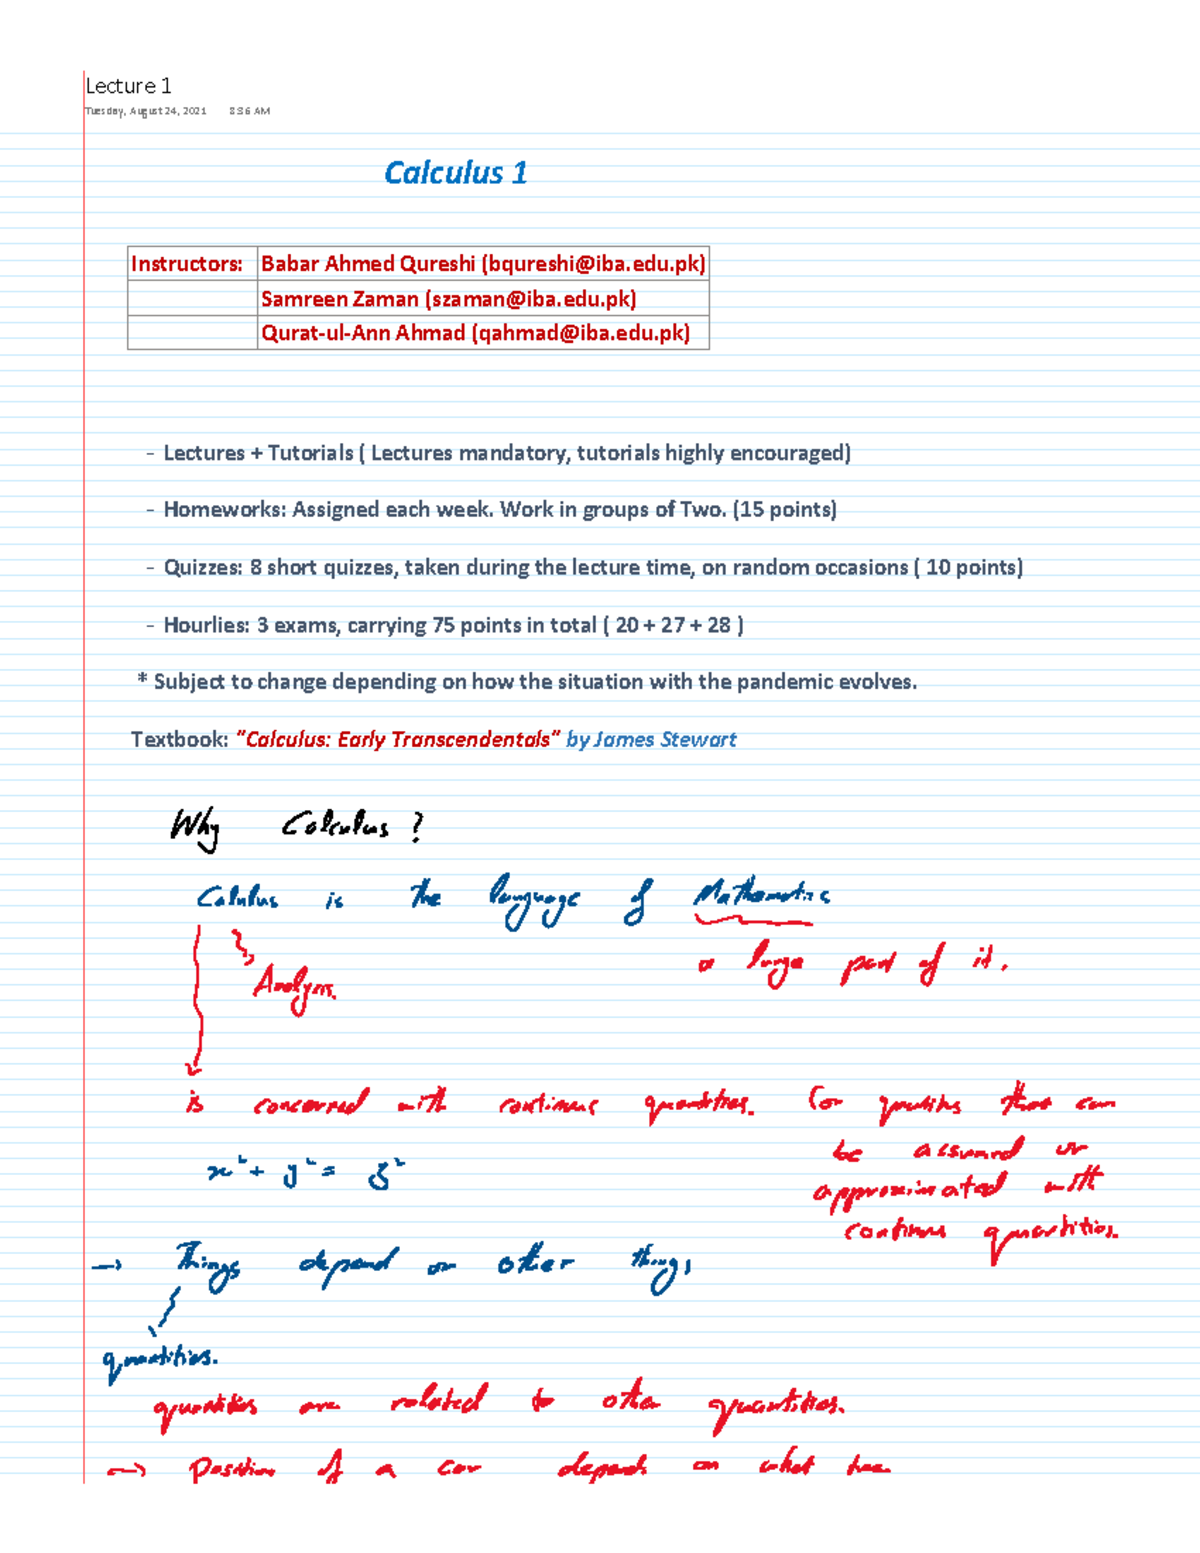 Lecture 1
Tuesday, August 24, 2021 8:36 AM
Calculus 1
Instructors: Babar Ahmed Qureshi (bqureshi@iba.edu.pk)
Samreen Zaman (szaman@iba.edu.pk)
Qurat-ul-Ann Ahmad (qahmad@iba.edu.pk)
- Lectures + Tutorials ( Lectures mandatory, tutorials highly encouraged)
- Homeworks: Assigned each week. Work in groups of Two. (15 points)
- Quizzes: 8 short quizzes, taken during the lecture time, on random occasions ( 10 points)
- Hourlies: 3 exams, carrying 75 points in total ( 20 + 27 + 28 )
* Subject to change depending on how the situation with the pandemic evolves.
Textbook: "Calculus: Early Transcendentals" by James Stewart
Why Calculus ?
Calculus is the language of Mathematics
a large part of it.
Analysis.
is concerned with continuous quantities. (or quantities that can
be assumed or
approximated with
continuous quantities.
x² + y² = z²
→ Things depend on other things
quantities.
quantities are related to other quantities.
→ Position of a car depends on what time